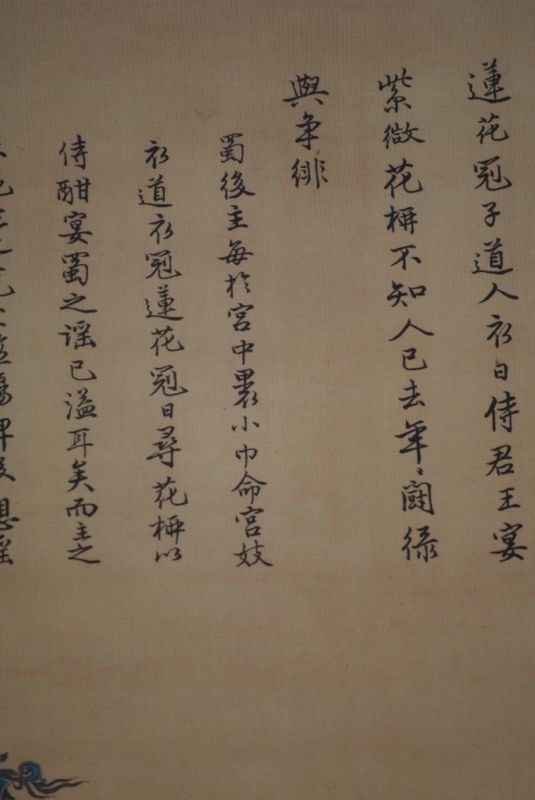 蓮花冠子道人衣日侍君王宴
紫微花柳不知人已去年〻鬪綠
與爭緋
蜀後主每於宮中裹小巾命宮妓
衣道衣冠蓮花冠日尋花柳以
侍酣宴蜀之謡已溢耳矣而主之
觴俾後想